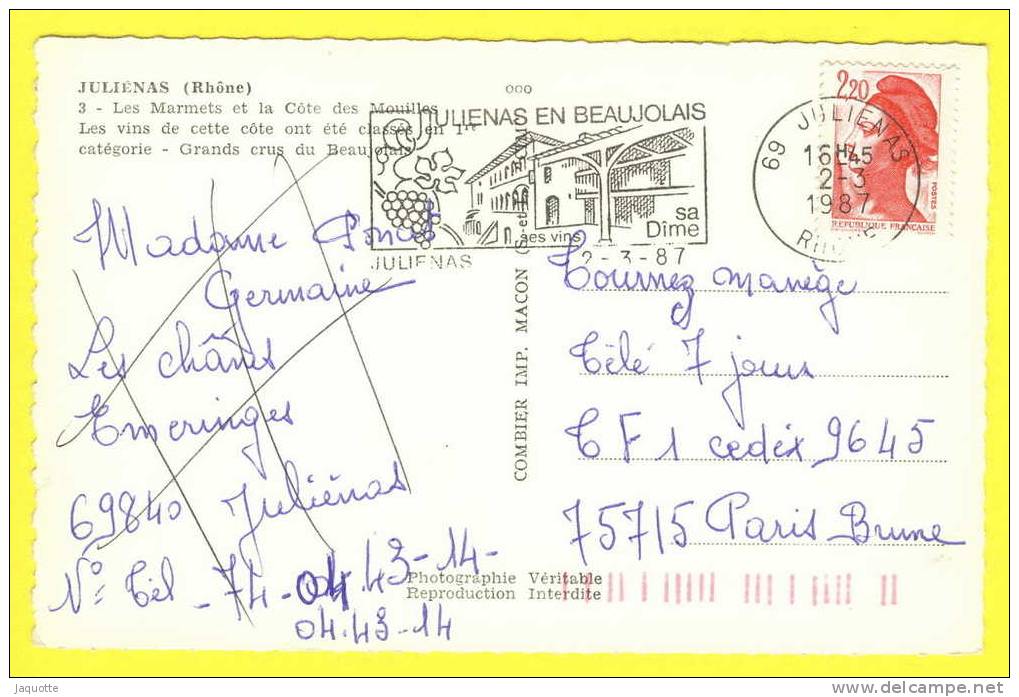 JULIÉNAS (Rhône)
3 - Les Marmets et la Côte des Mouilles
Les vins de cette côte ont été classés en 1re
catégorie - Grands crus du Beaujolais
ooo
JULIENAS EN BEAUJOLAIS
ses vins
sa
Dîme
JULIENAS
2-3-87
69 JULIENAS
16H45
2-3
1987
RHONE
2,20
POSTES
REPUBLIQUE FRANÇAISE
Madame
Germaine
Les chânes
Emeringes
69840 Juliénas
N° Tél - 74-04.43-14-
04.43-14
COMBIER IMP. MACON (S.-et-
Tournez manège
Télé 7 jours
TF1 cedex 9645
75715 Paris Brune
Photographie Véritable
Reproduction Interdite
jaquotte
www.delcampe.net